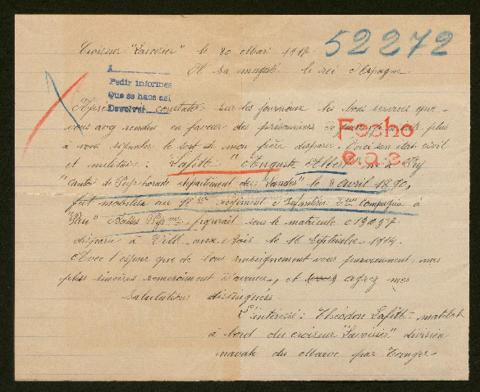 Croiseur "Lavoisier" le 20 Mars 1917
52272
A sa majesté le roi d'Espagne
A
Pedir informes
Que se haga así
Devolver
Fecho
e.o.e.
Après constaté sur les journaux les bons services que
vous avez rendus en faveur des prisonniers
à vous signaler le sort de mon frère disparu. Voici son état civil
et militaire : Lafitte "Auguste Albert" né à Pey
canton de Peyrehorade département des Landes" le 8 avril 1890,
fut mobilisé au 18 régiment d'infanterie 7 compagnie à
Pau" Basses Pyr figurait sous le matricule
disparu à Ville aux bois le 16 Septembre 1914.
Avec l'espoir que de bons renseignements vous parviennent, mes
plus sincères remerciements d'avance, et agréez mes
salutations distinguées
L'intéressé : Théodore Lafitte matelot
à bord du croiseur "Lavoisier" division
navale du Maroc par Tanger